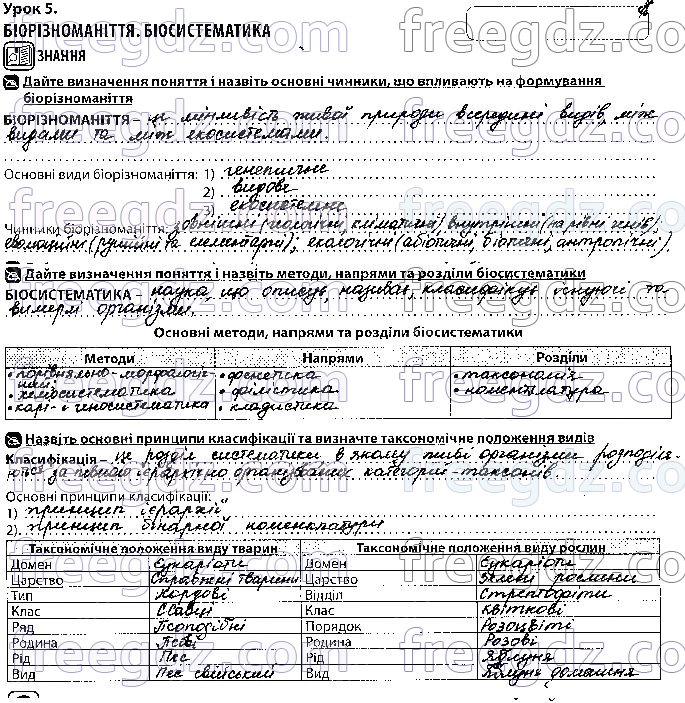 Урок 5.
БІОРІЗНОМАНІТТЯ. БІОСИСТЕМАТИКА
ЗНАННЯ
Дайте визначення поняття і назвіть основні чинники, що впливають на формування
біорізноманіття
БІОРІЗНОМАНІТТЯ – це мінливість живої природи всередині видів, між
видами та між екосистемами.
Основні види біорізноманіття: 1) генетичне
2) видове
3) екосистемне
Чинники біорізноманіття: зовнішні (геологічні, кліматичні), внутрішні (на рівні генів);
еволюційні (рушійні та елементарні); екологічні (абіотичні, біотичні, антропічні).
Дайте визначення поняття і назвіть методи, напрями та розділи біосистематики
БІОСИСТЕМАТИКА – наука, що описує, називає, класифікує існуючі та
вимерлі організми.
Основні методи, напрями та розділи біосистематики
Методи Напрями Розділи
• порівняльно-морфологічний • фенетика • таксономія
• хемосистематика • філістика • номенклатура
• карі- і геносистематика • кладистика
Назвіть основні принципи класифікації та визначте таксономічне положення видів
Класифікація – це розділ систематики в якому живі організми розподіля-
ються за певною ієрархічно організованих категорій-таксонів.
Основні принципи класифікації:
1) принцип ієрархії
2) принцип бінарної номенклатури
Таксономічне положення виду тварин Таксономічне положення виду рослин
Домен Еукаріоти Домен Еукаріоти
Царство Справжні тварини Царство Зелені рослини
Тип Хордові Відділ Стрептофіти
Клас Ссавці Клас Квіткові
Ряд Псоподібні Порядок Розоцвіті
Родина Псові Родина Розові
Рід Пес Рід Яблуня
Вид Пес свійський Вид Яблуня домашня
freegdz.com freegdz.com